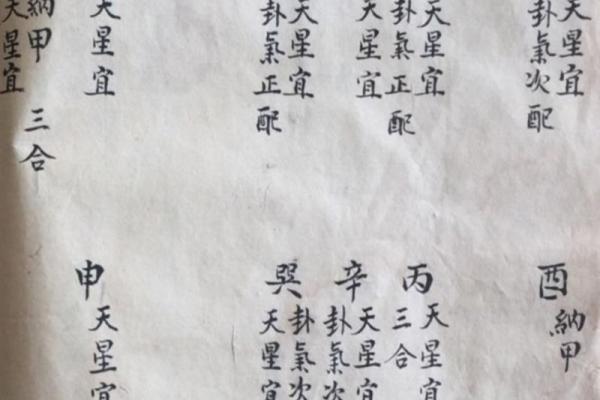 天星宜
卦氣次配
天星宜
卦氣正配
天星宜
天星宜
卦氣正配
天星宜
納甲 三合
天星宜
酉 納甲
丙 天星宜
三合
辛 天星宜
卦氣次
巽 卦氣次
天星宜
申 天星宜